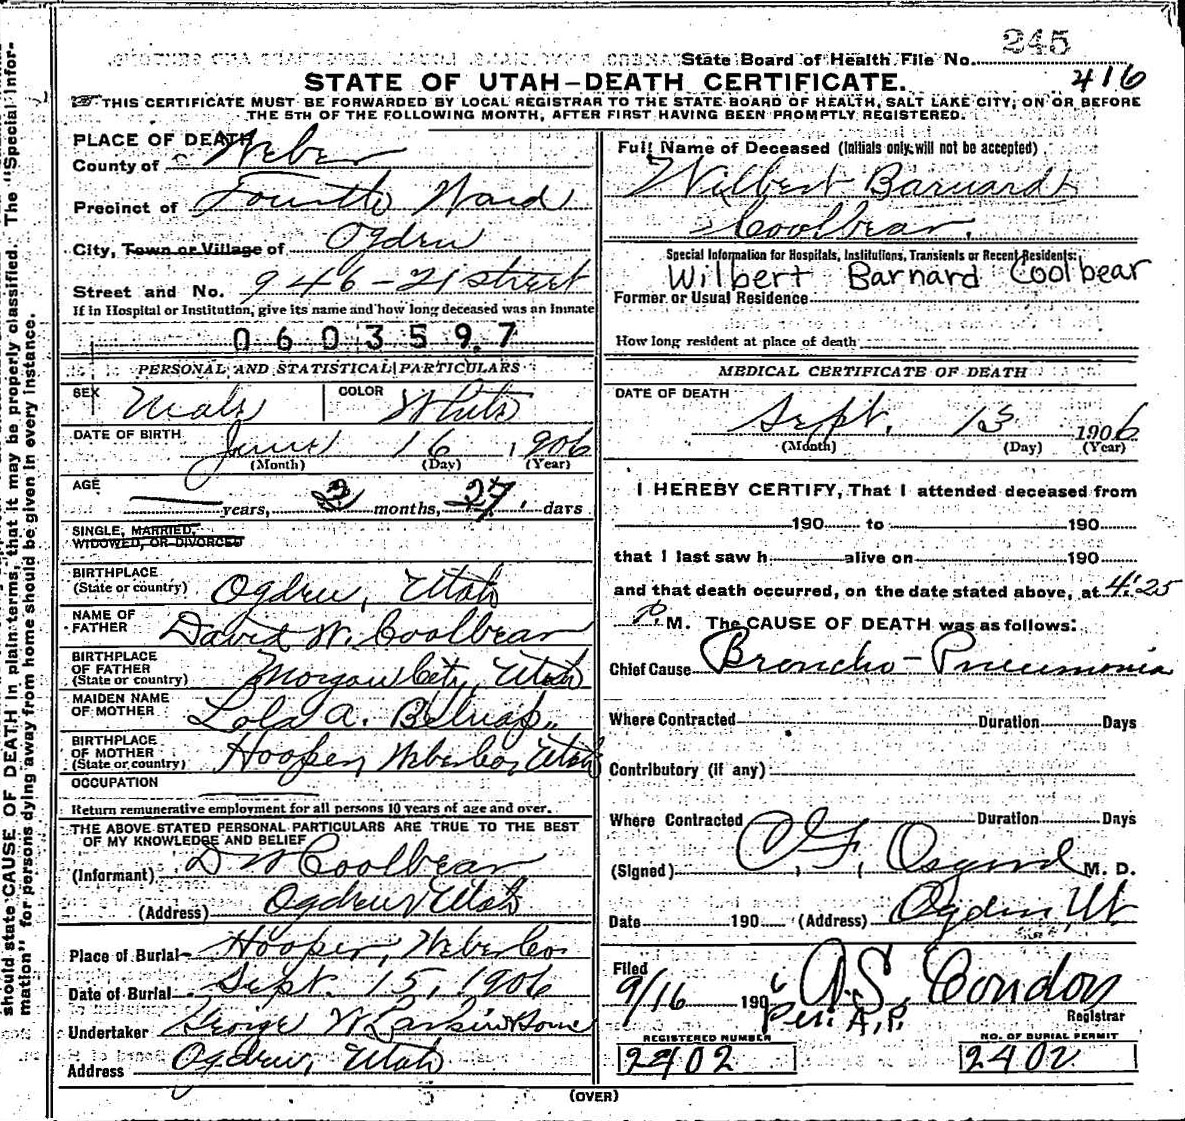 245
State Board of Health File No.
STATE OF UTAH-DEATH CERTIFICATE.
416
THIS CERTIFICATE MUST BE FORWARDED BY LOCAL REGISTRAR TO THE STATE BOARD OF HEALTH, SALT LAKE CITY, ON OR BEFORE
THE 5TH OF THE FOLLOWING MONTH, AFTER FIRST HAVING BEEN PROMPTLY REGISTERED.
PLACE OF DEATH
County of Weber
Precinct of Fourth Ward
City, Town or Village of Ogden
Street and No. 946-21 street
If in Hospital or Institution, give its name and how long deceased was an Inmate
0603597
PERSONAL AND STATISTICAL PARTICULARS
SEX Male COLOR White
DATE OF BIRTH June 16, 1906
(Month) (Day) (Year)
AGE
years, 2 months, 27 days
SINGLE, MARRIED,
WIDOWED, OR DIVORCED
BIRTHPLACE
(State or country) Ogden, Utah
NAME OF
FATHER David W. Coolbear
BIRTHPLACE
OF FATHER
(State or country) Morgan City, Utah
MAIDEN NAME
OF MOTHER Lola A. Belnap
BIRTHPLACE
OF MOTHER
(State or country) Hooper, Weber Co, Utah
OCCUPATION
Return remunerative employment for all persons 10 years of age and over.
THE ABOVE STATED PERSONAL PARTICULARS ARE TRUE TO THE BEST
OF MY KNOWLEDGE AND BELIEF
(Informant) D W Coolbear
(Address) Ogden Utah
Place of Burial Hooper, Weber Co
Date of Burial Sept. 15, 1906
Undertaker George W Larkin & Sons
Address Ogden, Utah
Full Name of Deceased (Initials only will not be accepted)
Wilbert Barnard
Coolbear.
Special Information for Hospitals, Institutions, Transients or Recent Residents:
Wilbert Barnard Coolbear
Former or Usual Residence
How long resident at place of death
MEDICAL CERTIFICATE OF DEATH
DATE OF DEATH
Sept. 13 1906
(Month) (Day) (Year)
I HEREBY CERTIFY, That I attended deceased from
190 to 190
that I last saw h alive on 190
and that death occurred, on the date stated above, at 4:25
P. M. The CAUSE OF DEATH was as follows:
Chief Cause Broncho-Pneumonia
Where Contracted Duration Days
Contributory (if any)
Where Contracted Duration Days
(Signed) Osgood M. D.
Date 190 (Address) Ogden, Ut
Filed
9/16 1906 A.S. Condon
Per A.P. Registrar
REGISTERED NUMBER NO. OF BURIAL PERMIT
2402 2402
(OVER)
should state CAUSE OF DEATH in plain terms, that it may be properly classified. The "Special Infor-
mation" for persons dying away from home should be given in every instance.